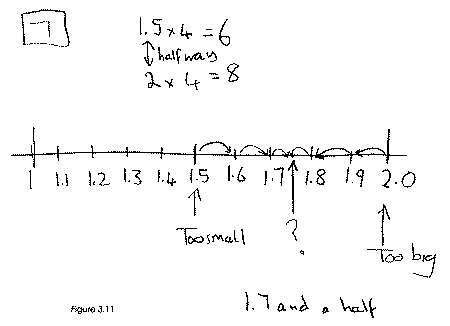 7
1.5 x 4 = 6
↕ half way
2 x 4 = 8
1 1.1 1.2 1.3 1.4 1.5 1.6 1.7 1.8 1.9 2.0
Too small
?
Too big
1.7 and a half
Figure 3.11